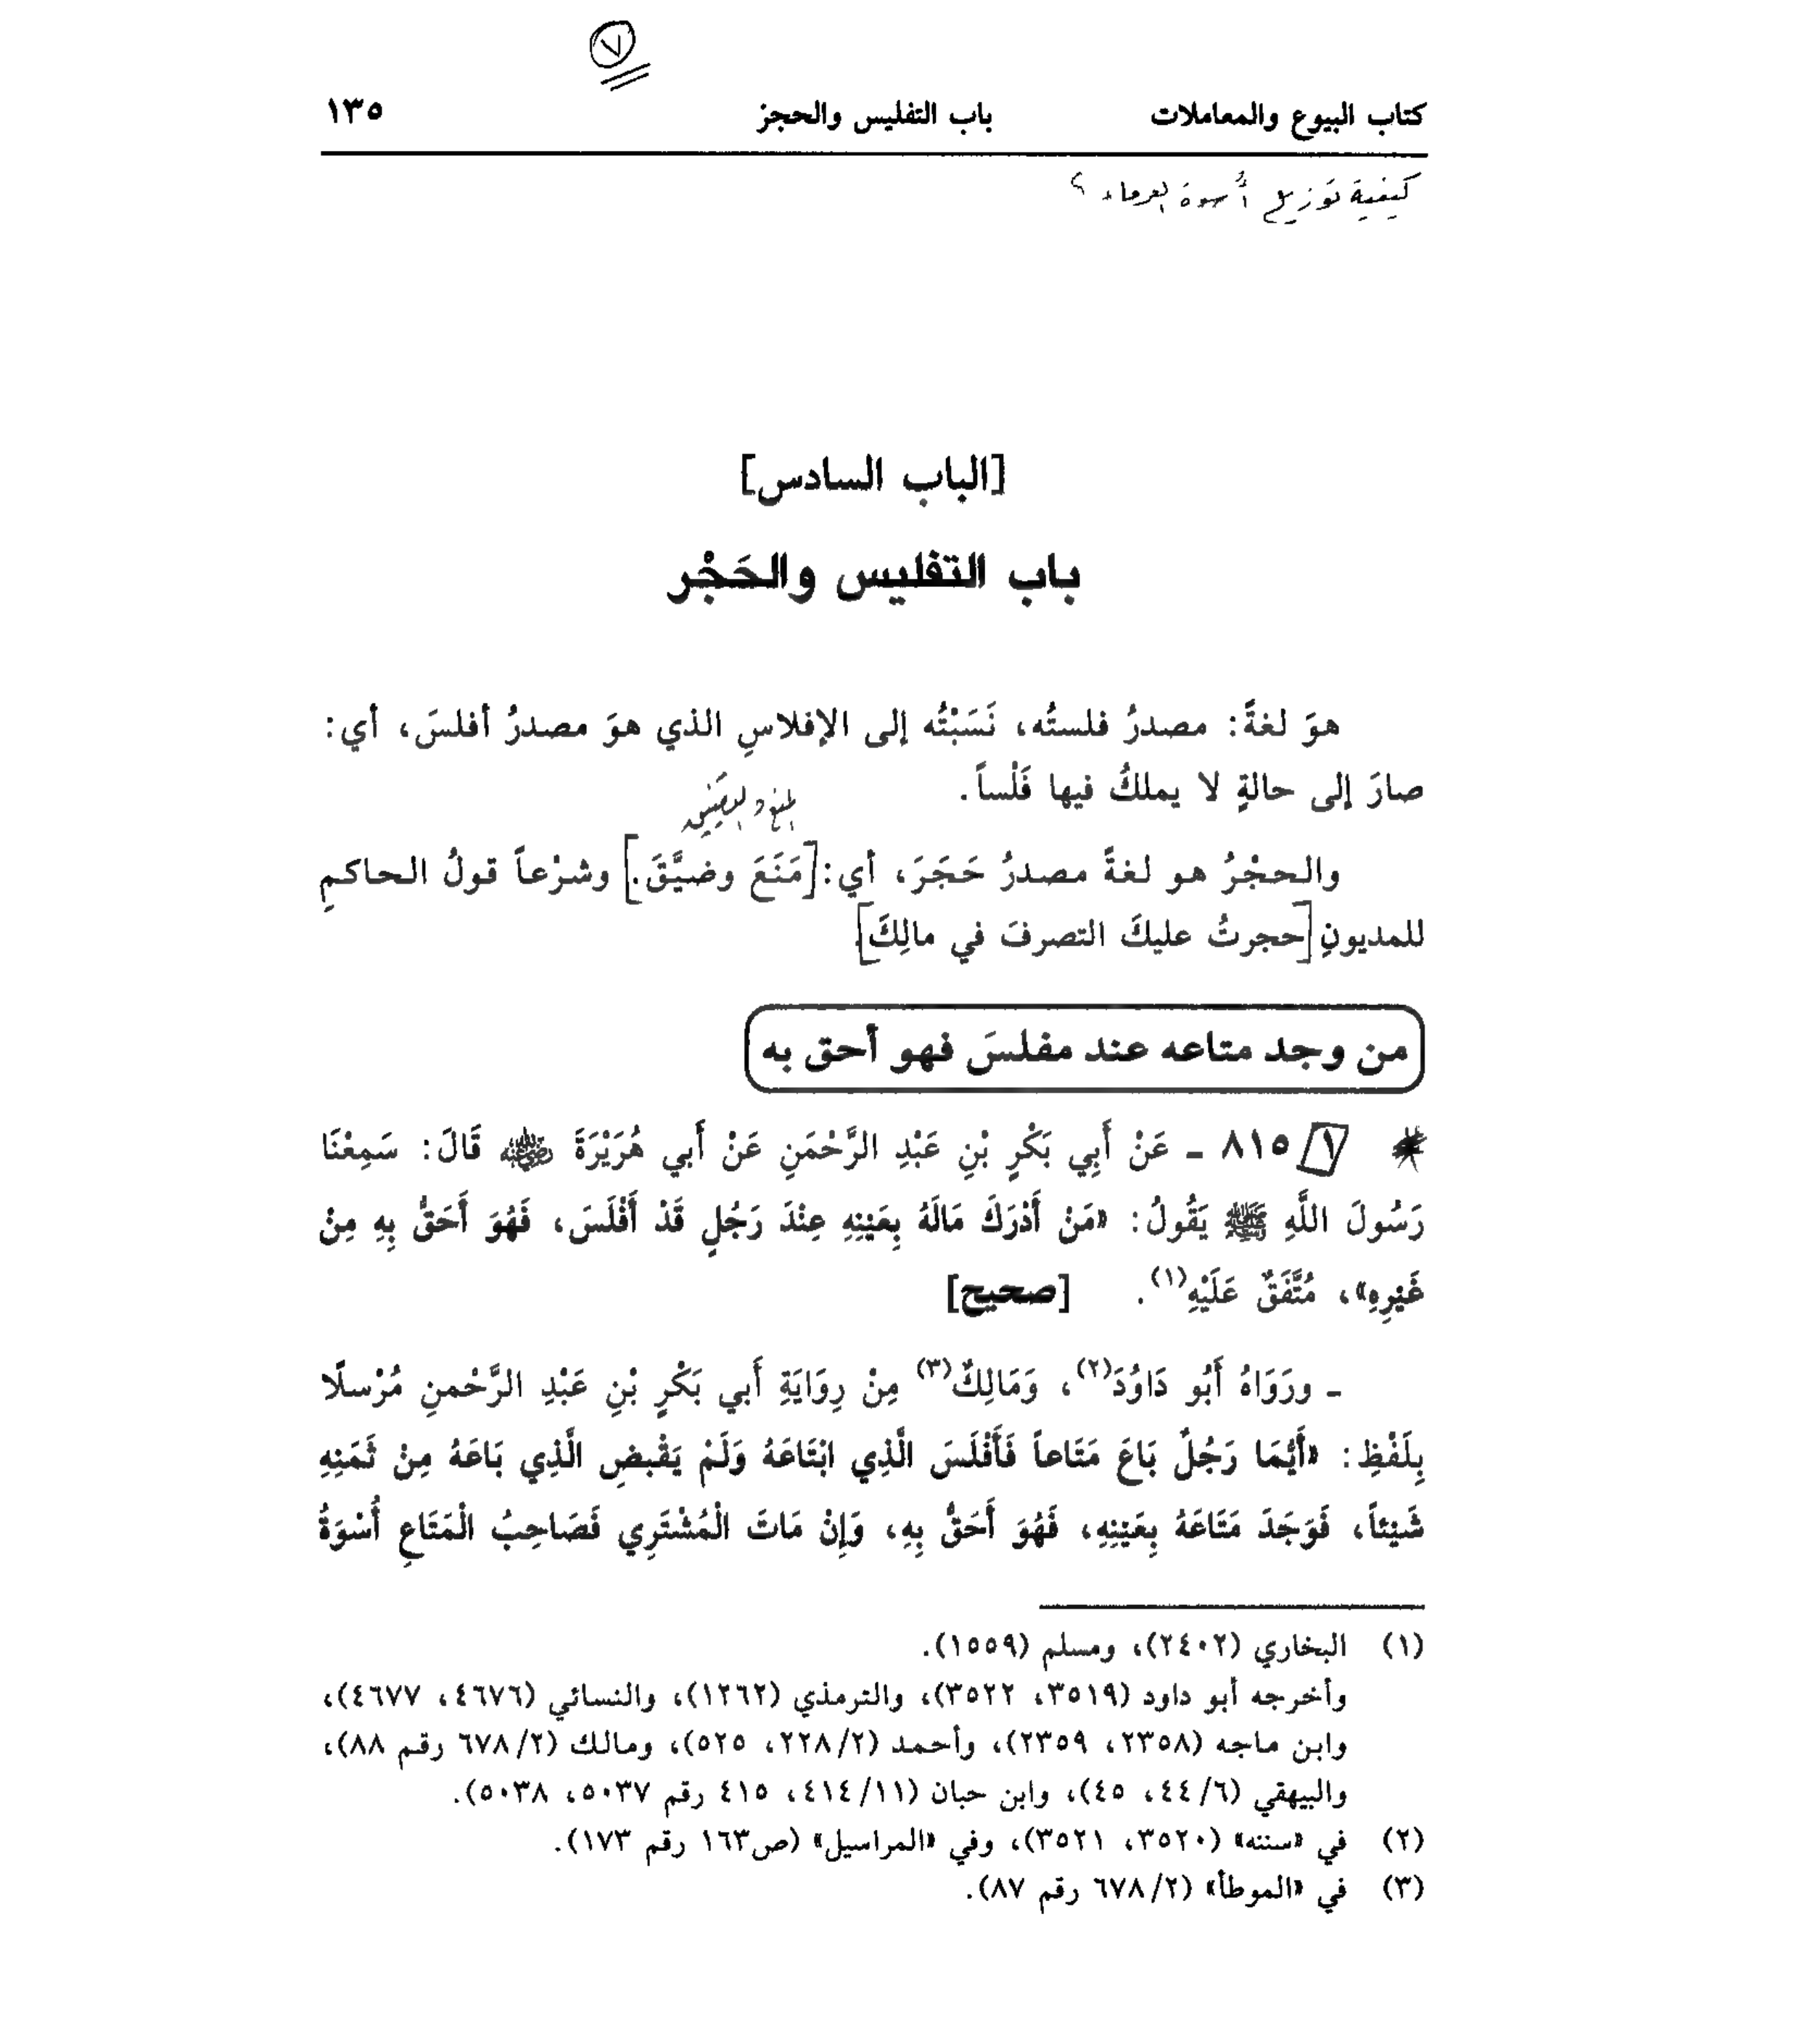 ٧
كتاب البيوع والمعاملات باب التفليس والحجز ١٣٥
كيفية توزيع أُسوة الغرماء ؟
[الباب السادس]
باب التفليس والحَجْر
هوَ لغةً: مصدرُ فلستُه، نَسَبْتُه إلى الإفلاسِ الذي هوَ مصدرُ أفلسَ، أي:
صارَ إلى حالةٍ لا يملكُ فيها فَلْساً.
المنع والتضييق
والحجْرُ هو لغةً مصدرُ حَجَرَ، أي: [مَنَعَ وضيَّقَ.] وشرْعاً قولُ الحاكمِ
للمديونِ [حجرتُ عليكَ التصرفَ في مالِكَ].
من وجد متاعه عند مفلسَ فهو أحق به
١/ ٨١٥ ـ عَنْ أَبِي بَكْرٍ بْنِ عَبْدِ الرَّحْمَنِ عَنْ أَبي هُرَيْرَةَ رضي الله عنه قَالَ: سَمِعْنَا
رَسُولَ اللَّهِ ﷺ يَقُولُ: «مَنْ أَدْرَكَ مَالَهُ بِعَيْنِهِ عِنْدَ رَجُلٍ قَدْ أَفْلَسَ، فَهُوَ أَحَقُّ بِهِ مِنْ
غَيْرِهِ»، مُتَّفَقٌ عَلَيْهِ(١). [صحيح]
ـ ورَوَاهُ أَبُو دَاوُدَ(٢)، وَمَالِكٌ(٣) مِنْ رِوَايَةِ أَبي بَكْرٍ بْنِ عَبْدِ الرَّحْمنِ مُرْسلًا
بِلَفْظِ: «أَيُّمَا رَجُلٌ بَاعَ مَتَاعاً فَأَفْلَسَ الَّذِي ابْتَاعَهُ وَلَمْ يَقْبضِ الَّذِي بَاعَهُ مِنْ ثَمَنِهِ
شَيْئاً، فَوَجَدَ مَتَاعَهُ بِعَيْنِهِ، فَهُوَ أَحَقُّ بِهِ، وَإِنْ مَاتَ الْمُشْتَرِي فَصَاحِبُ الْمَتَاعِ أُسْوَةُ
(١) البخاري (٢٤٠٢)، ومسلم (١٥٥٩).
وأخرجه أبو داود (٣٥١٩، ٣٥٢٢)، والترمذي (١٢٦٢)، والنسائي (٤٦٧٦، ٤٦٧٧)،
وابن ماجه (٢٣٥٨، ٢٣٥٩)، وأحمد (٢/ ٢٢٨، ٥٢٥)، ومالك (٢/ ٦٧٨ رقم ٨٨)،
والبيهقي (٦/ ٤٤، ٤٥)، وابن حبان (١١/ ٤١٤، ٤١٥ رقم ٥٠٣٧، ٥٠٣٨).
(٢) في «سننه» (٣٥٢٠، ٣٥٢١)، وفي «المراسيل» (ص١٦٣ رقم ١٧٣).
(٣) في «الموطأ» (٢/ ٦٧٨ رقم ٨٧).